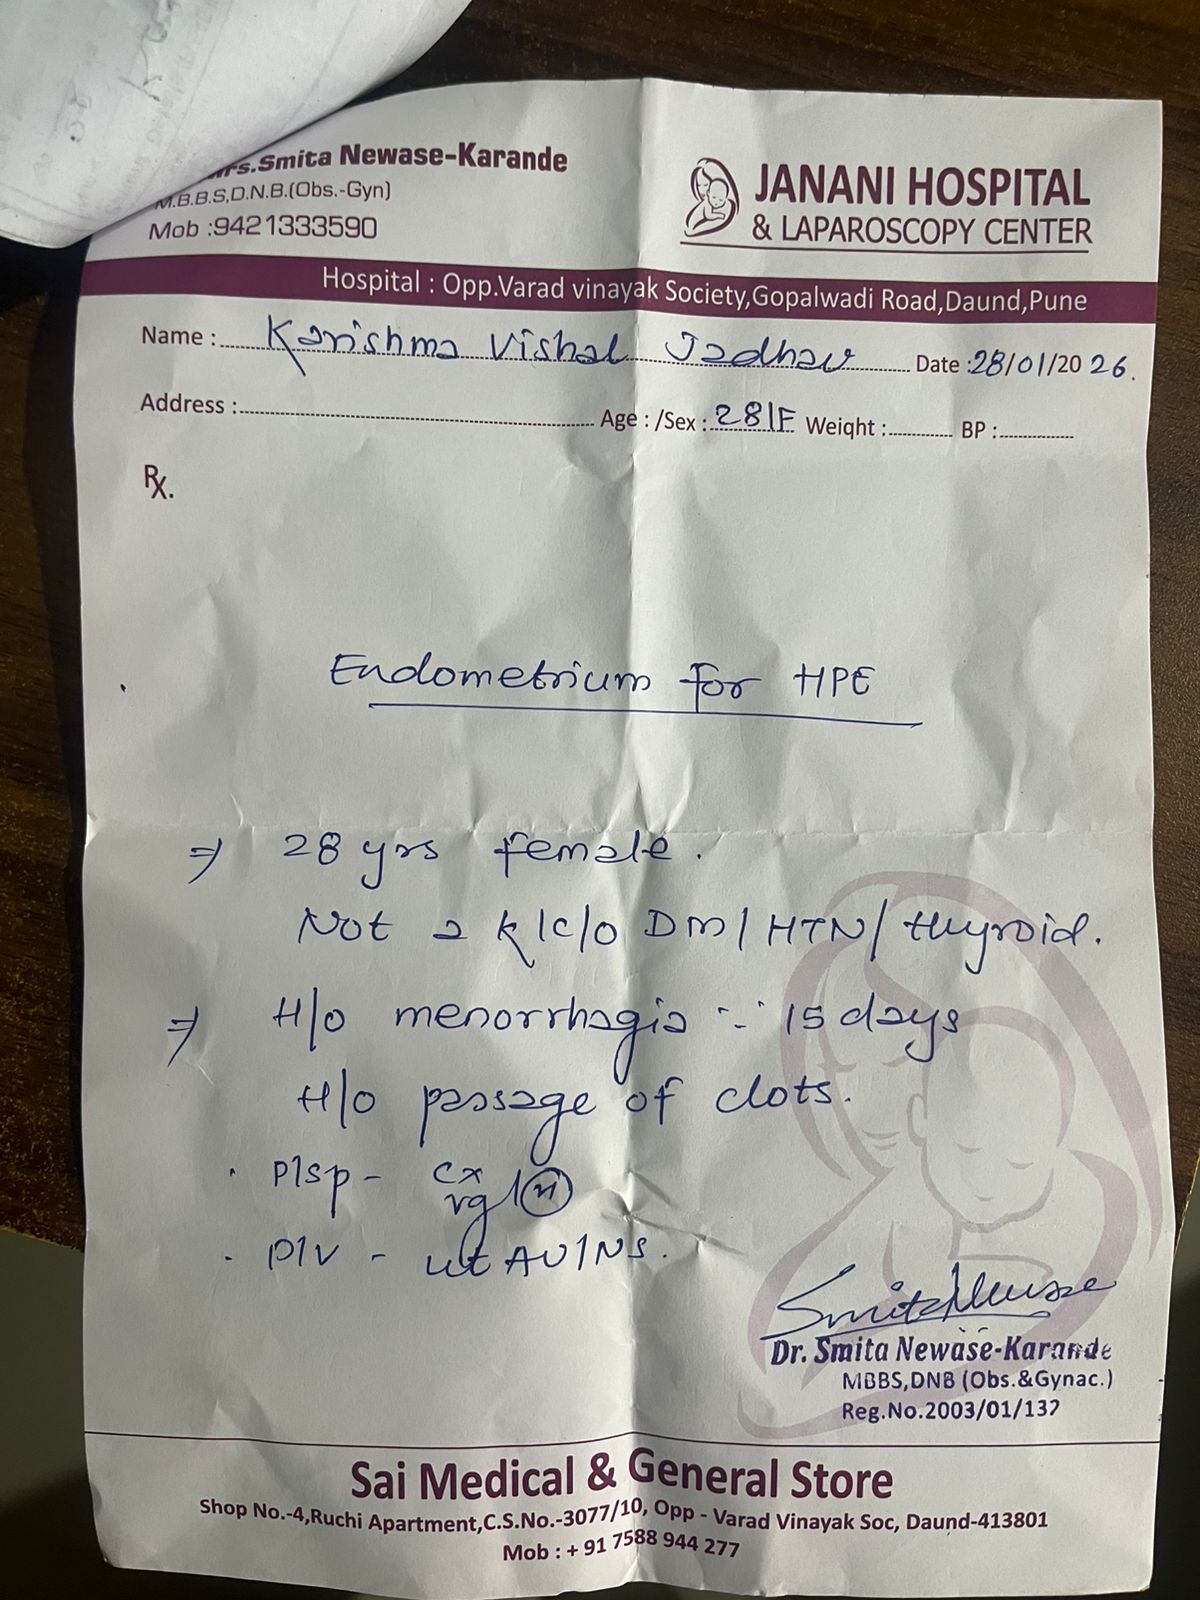 Mrs.Smita Newase-Karande
M.B.B.S,D.N.B.(Obs.-Gyn)
Mob :9421333590
JANANI HOSPITAL
& LAPAROSCOPY CENTER
Hospital : Opp.Varad vinayak Society,Gopalwadi Road,Daund,Pune
Name : Karishma Vishal Jadhav Date :28/01/2026.
Address : Age : /Sex : 28/F Weight : BP :
Rx.
Endometrium for HPE
⇒ 28 yrs female.
Not a k/c/o DM/HTN/thyroid.
⇒ H/o menorrhagia ∵ 15 days
H/o passage of clots.
• P/sp - cx
vg / (N)
• P/V - ut AV/NS.
Dr. Smita Newase-Karande
MBBS,DNB (Obs.&Gynac.)
Reg.No.2003/01/137
Sai Medical & General Store
Shop No.-4,Ruchi Apartment,C.S.No.-3077/10, Opp - Varad Vinayak Soc, Daund-413801
Mob : + 91 7588 944 277